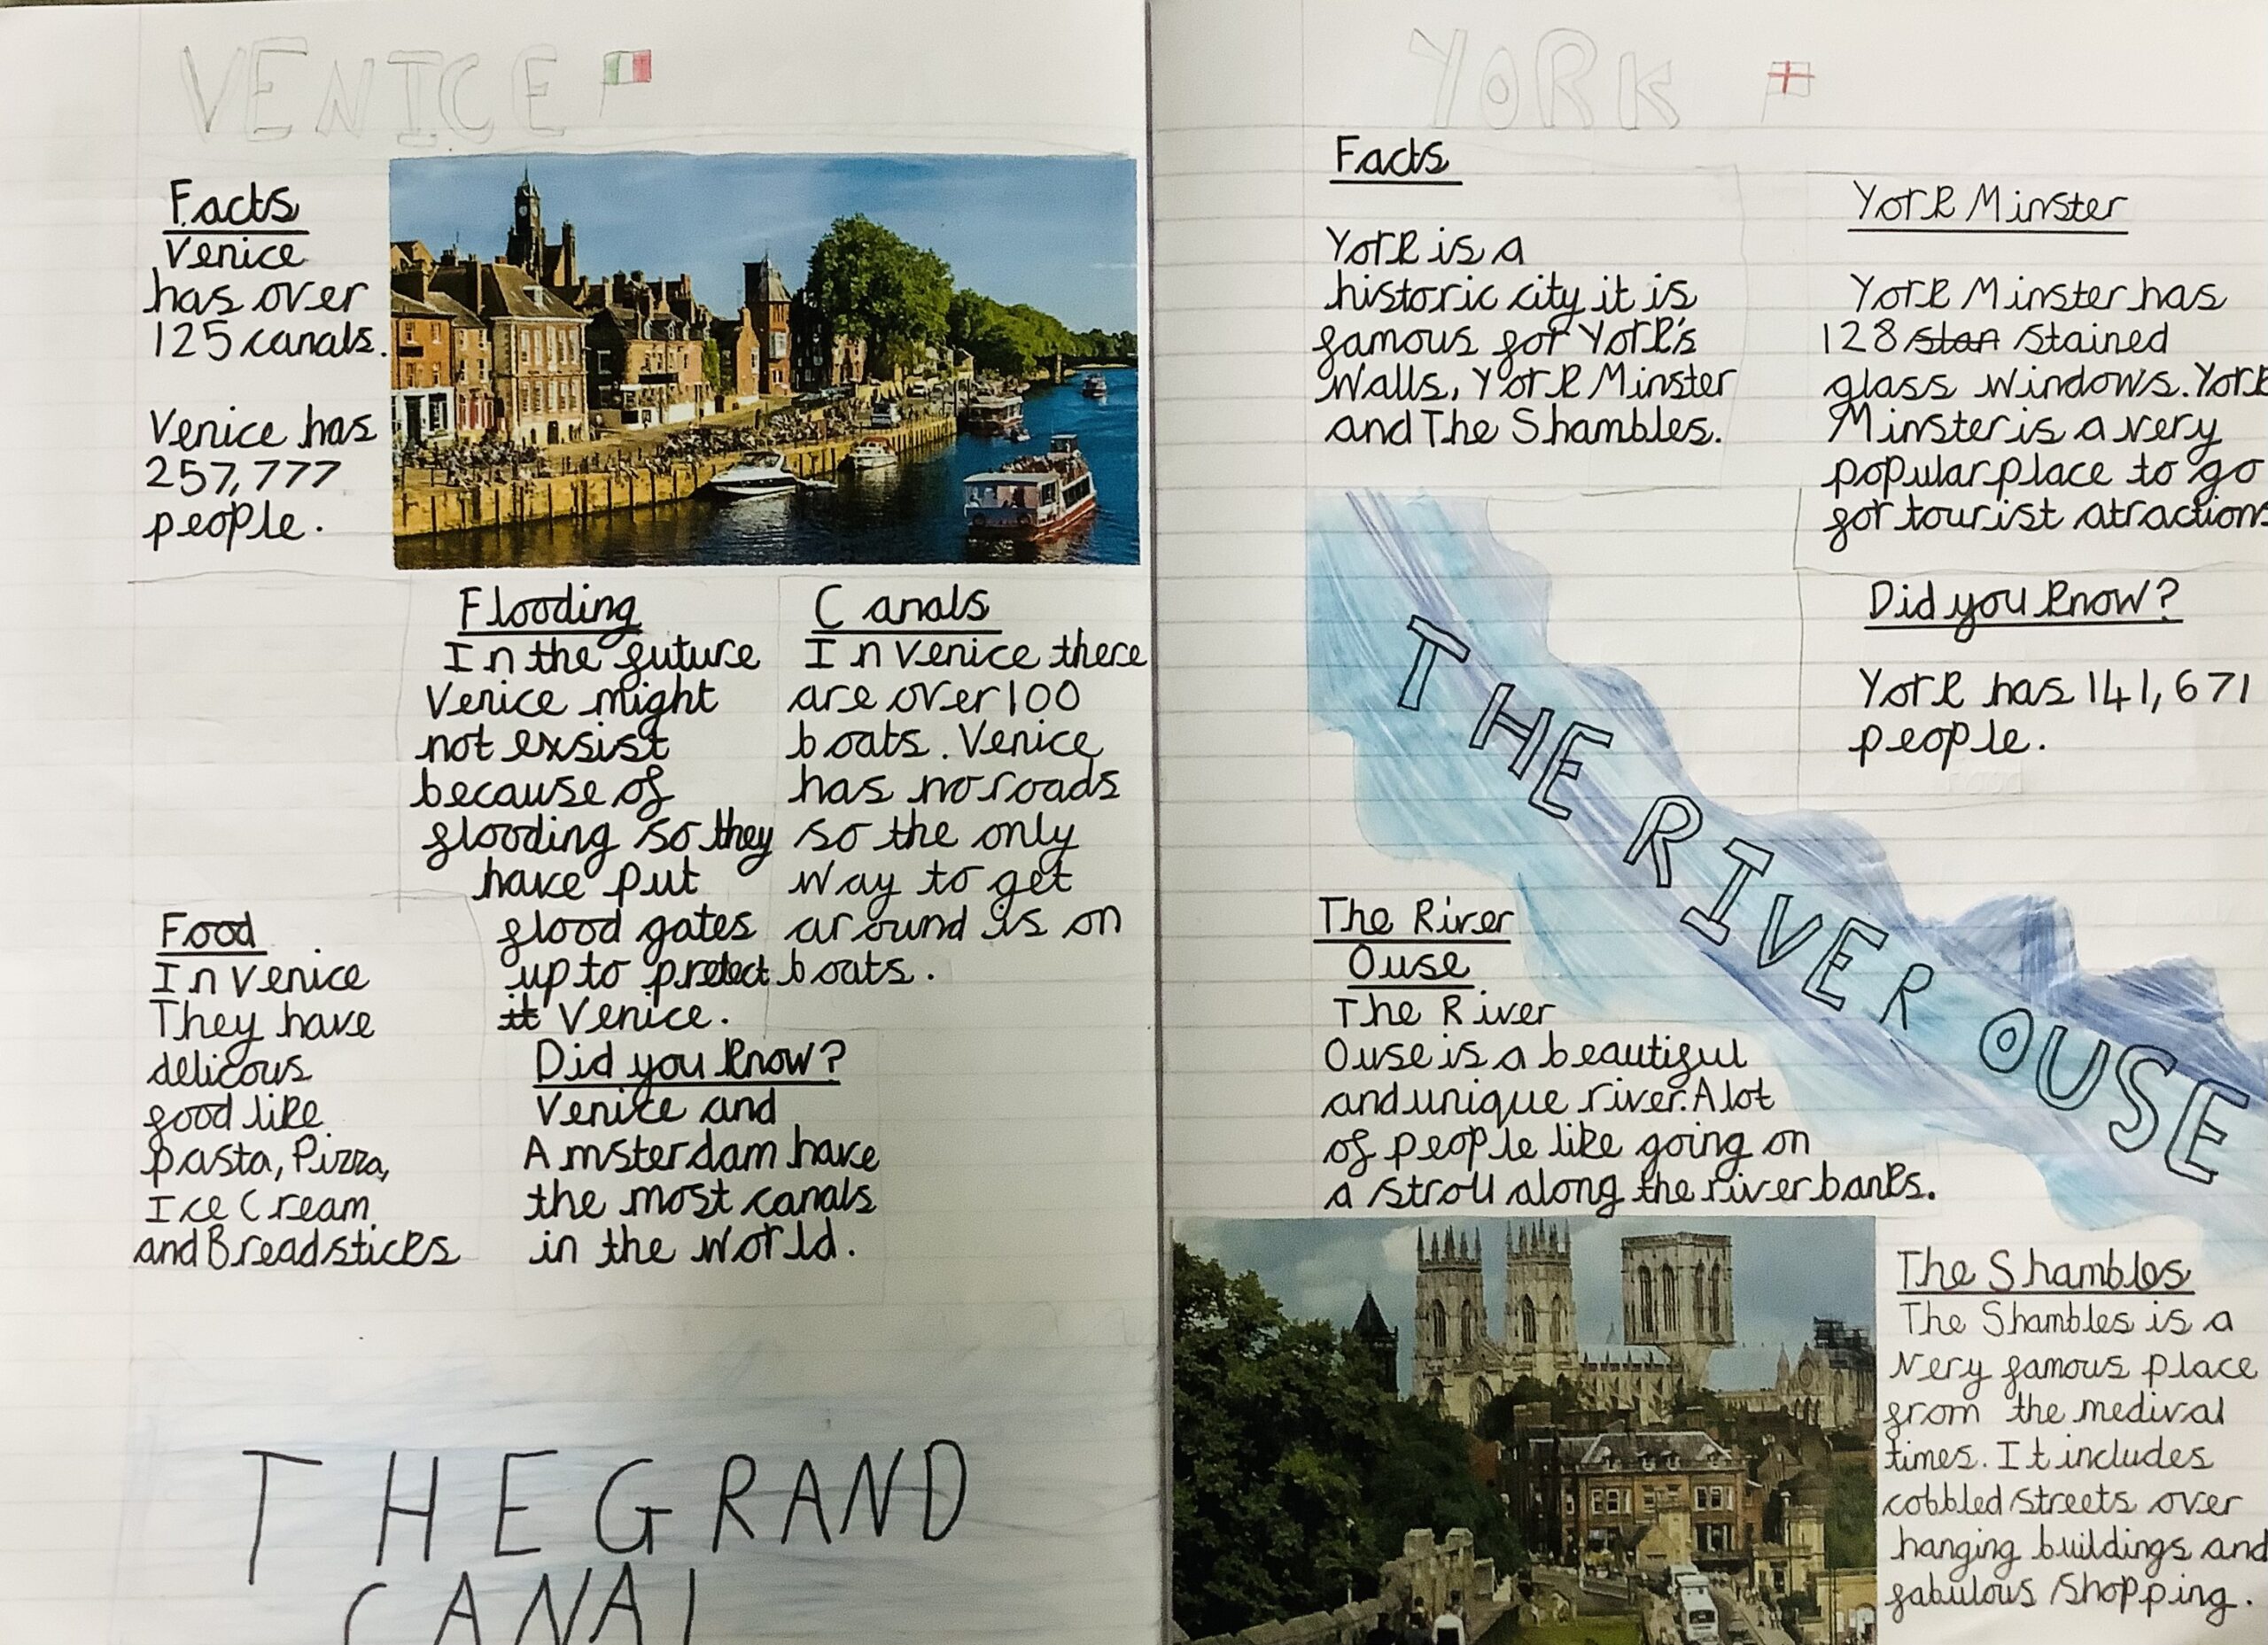 VENICE
Facts
Venice
has over
125 canals.
Venice has
257,777
people.
Flooding
In the future
Venice might
not exsist
because of
flooding so they
have put
flood gates
up to protect
it Venice.
Canals
In Venice there
are over 100
boats. Venice
has no roads
so the only
way to get
around is on
boats.
Food
In Venice
They have
delicous
food like
pasta, Pizza,
Ice Cream
and Breadsticks
Did you know?
Venice and
Amsterdam have
the most canals
in the world.
THE GRAND
CANAL
YORK
Facts
York is a
historic city it is
famous for York's
Walls, York Minster
and The Shambles.
York Minster
York Minster has
128 stan stained
glass windows. York
Minster is a very
popular place to go
for tourist atractions
Did you know?
York has 141,671
people.
THE RIVER OUSE
The River
Ouse
The River
Ouse is a beautiful
and unique river. A lot
of people like going on
a stroll along the river banks.
The Shambles
The Shambles is a
very famous place
from the medival
times. It includes
cobbled streets over
hanging buildings and
fabulous shopping.